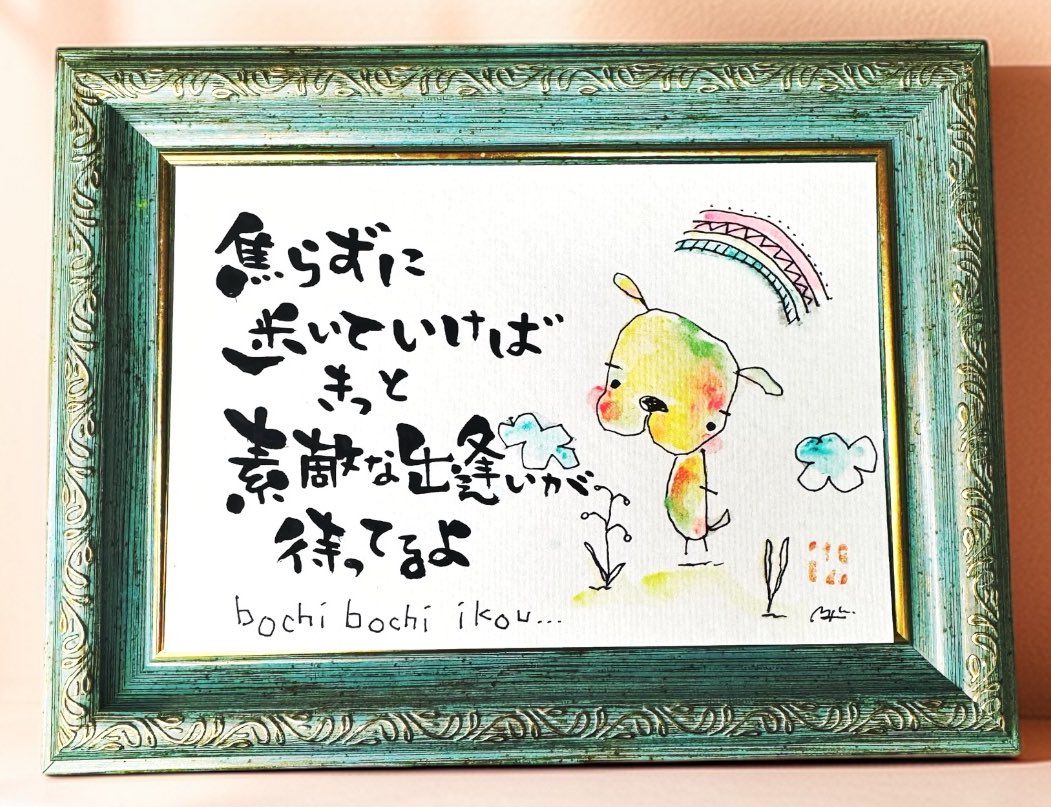 焦らずに
歩いていけば
きっと
素敵な出逢いが
待ってるよ
bochi bochi ikou...